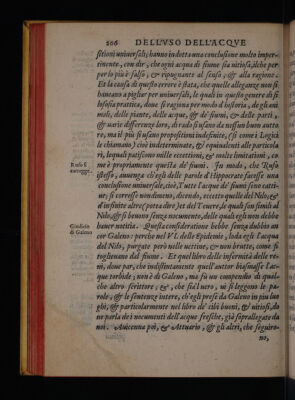 206 DELL'VSO DELL'ACQVE
sitioni universali; hanno indotta una conclusione molto imper-
tinente, con dir, che ogni acqua di fiume sia uitiosa, ilche per
per lo più è falso, & ripugnante al senso, & alla ragione.
Et la causa di questo errore è stata, che quelle allegate non si
haueano a pigliar per universali, le quali in questo genere di fi
losofia prattica, doue si ragiona per modo d'historia, de gli ani
mali, delle piante, delle acque, & de' fiumi, & delle parti,
& uarie differenze loro, di rado si usano da nessun buon auto
re, ma il più si usano propositioni indefinite, (si come i Logici
le chiamano) cioè indeterminate, & equiualenti alle particola
ri, lequali patiscono mille eccettioni, & molte limitationi, co
me è propriamente questa de' fiumi. In modo, che Rufo
istesso, auuenga ch'egli delle parole d'Hippocrate facesse una
conclusione uniuersale, cioè, Tutte l'acque de' fiumi sono catti-
ue; si corresse nondimeno, dicendo, eccetto quelle del Nilo; &
d'infinite altre (potea dire) et del Teuere, le quali son simili al
Nilo, & si beuono senza nocumento, delle quali egli non debbe
hauer notitia. Questa consideratione hebbe senza dubbio an
cor Galeno: perche nel VI. delle Epidemie, loda egli l'acqua
del Nilo, purgate però nelle uettine, & non brutte, come si
toglieuano dal fiume. Et quel libro delle infermità delle re-
ni, doue par, che indistintamente quell'auttor biasimasse l'ac-
que torbide; non è di Galeno, ma fù un compendio di qual-
che altro scrittore; &, che sia'l uero, ui si leggono le pa-
role, & le sentenze intere, ch'egli prese da Galeno in più luo
ghi; & particolarmente nel libro de' cibi buoni, & uitiosi, do
ue parla de i nocumenti dell'acque fresche, già sopr'allegate da
noi. Auicenna poi, & Attuario, & gli altri, che seguiro-
no,
Rufo si
corregge.
Giudicio
di Galeno